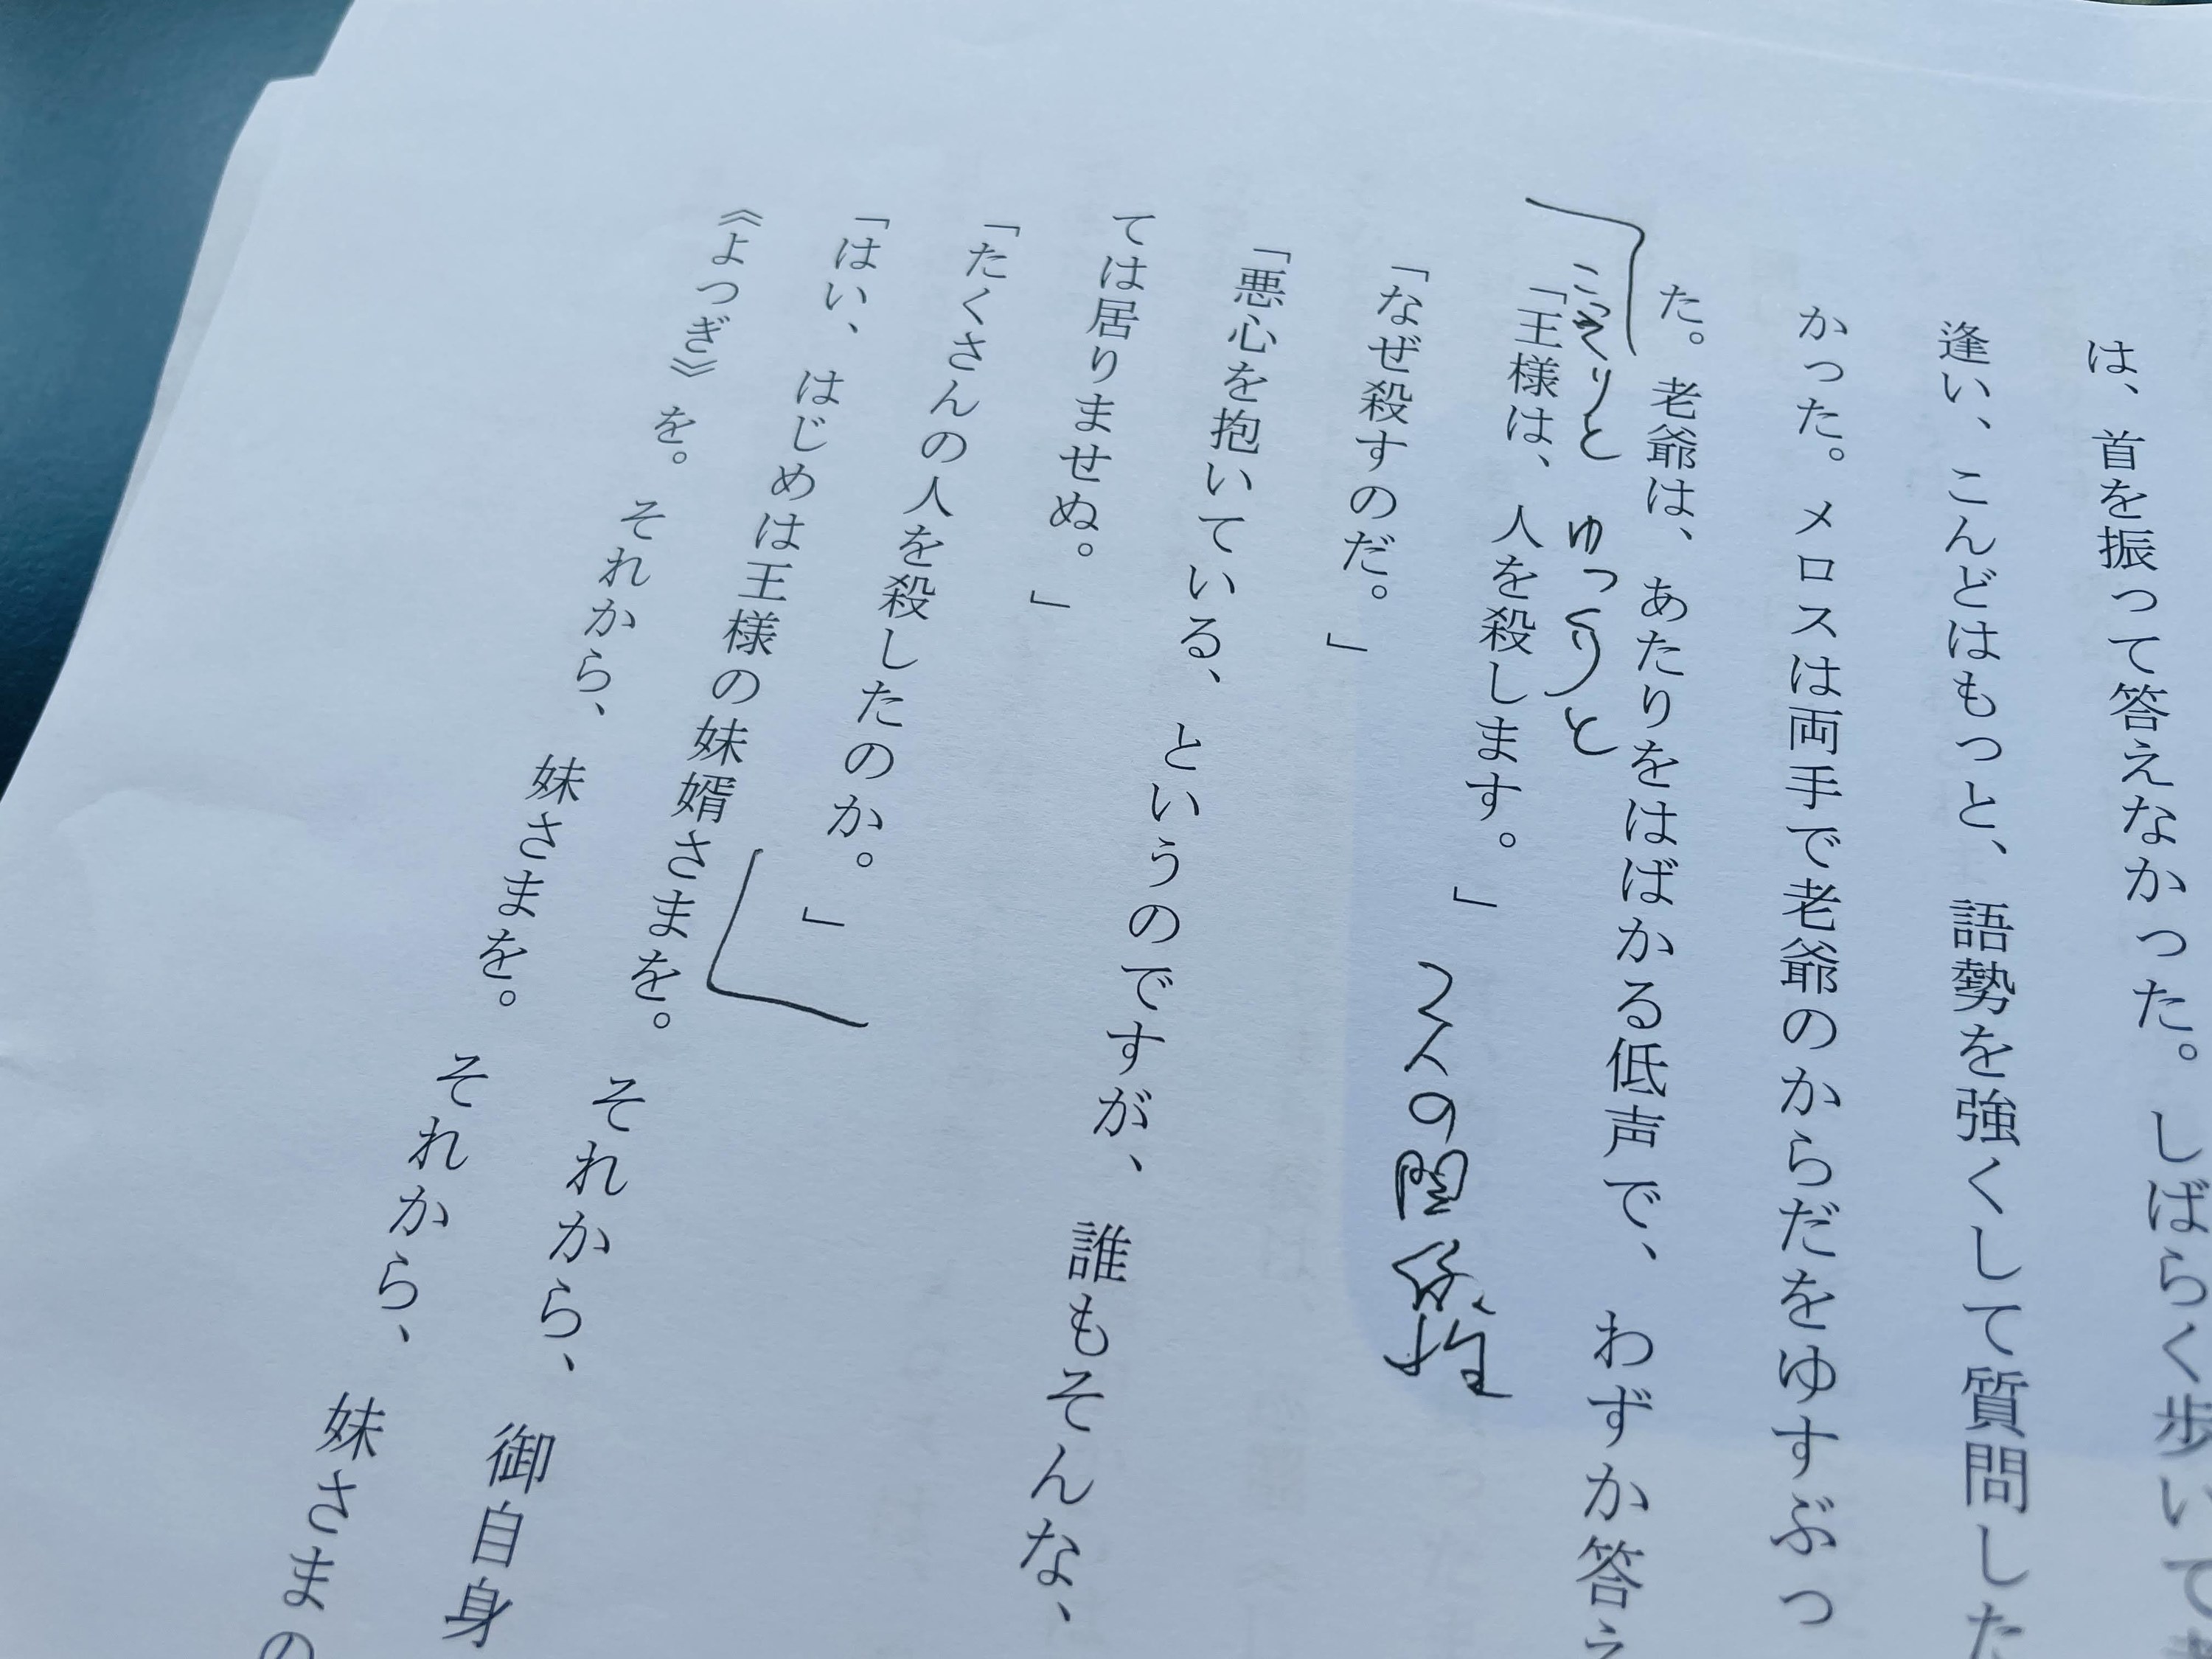 は、首を振って答えなかった。しばらく歩いて
逢い、こんどはもっと、語勢を強くして質問した
かった。メロスは両手で老爺のからだをゆすぶっ
た。老爺は、あたりをはばかる低声で、わずか答え
ゆっくりと
「王様は、人を殺します。」
2人の関係性
「なぜ殺すのだ。」
「悪心を抱いている、というのですが、誰もそんな、
ては居りませぬ。」
「たくさんの人を殺したのか。」
「はい、はじめは王様の妹婿さまを。それから、御自身
《よつぎ》を。それから、妹さまを。それから、妹さまの